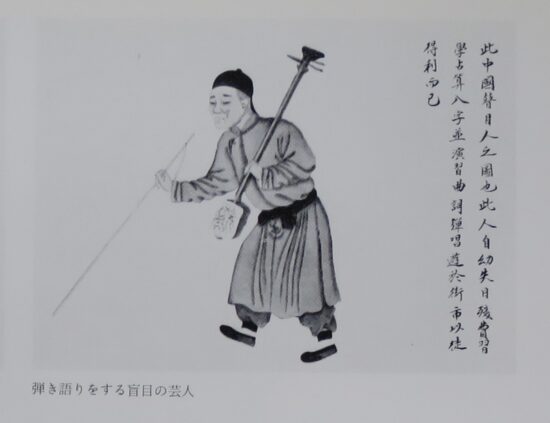 此中國瞽目人之圖也此人自幼失目殘費習
學占算八字並演習曲詞彈唱遊於街市以徒
得利而已
弾き語りをする盲目の芸人